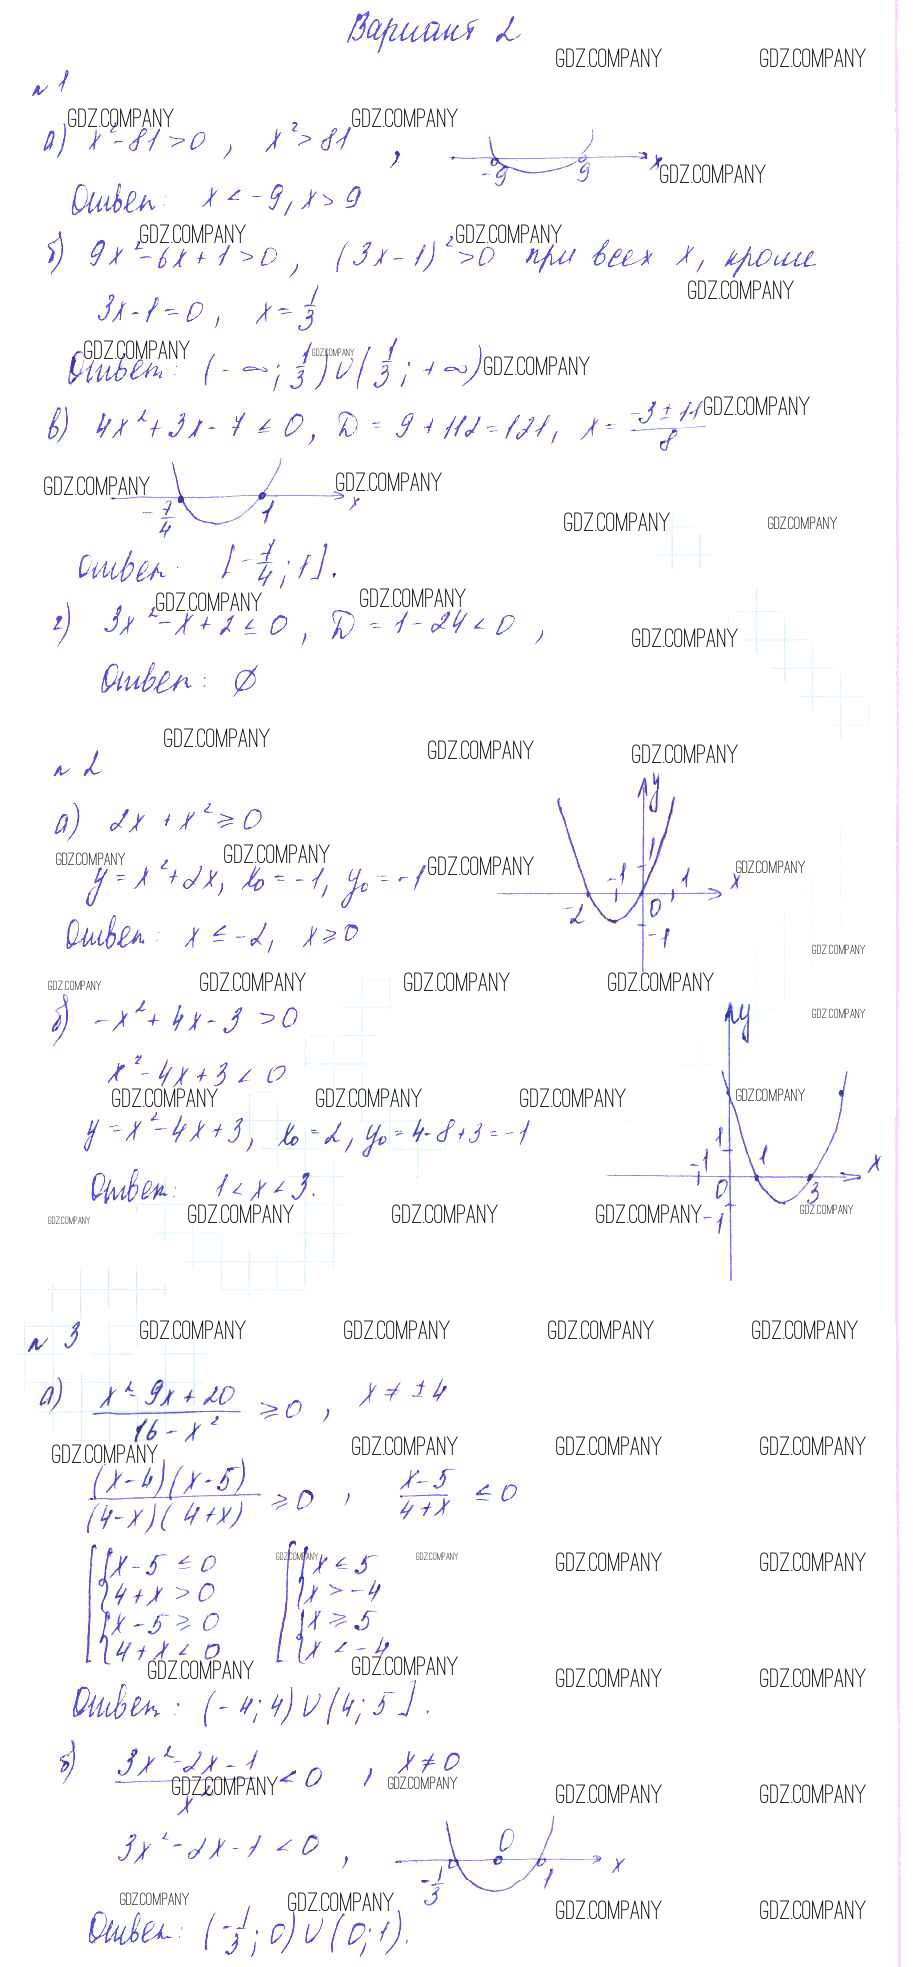 Вариант 2
№1
а) x² - 81 > 0, x² > 81, -9 9 x
Ответ: x < -9, x > 9
б) 9x² - 6x + 1 > 0, (3x - 1)² > 0 при всех x, кроме
3x - 1 = 0, x = 1/3
Ответ: (-∞; 1/3) ∪ (1/3; +∞)
в) 4x² + 3x - 7 ≤ 0, D = 9 + 112 = 121, x = (-3 ± 11)/8
-7/4 1 x
Ответ: [-7/4; 1].
г) 3x² - x + 2 ≤ 0, D = 1 - 24 < 0,
Ответ: ∅
№2
а) 2x + x² ≥ 0
y = x² + 2x, x₀ = -1, y₀ = -1
Ответ: x ≤ -2, x ≥ 0
y 1 -1 1 x -2 0 -1
б) -x² + 4x - 3 > 0
x² - 4x + 3 < 0
y = x² - 4x + 3, x₀ = 2, y₀ = 4 - 8 + 3 = -1
Ответ: 1 < x < 3.
y 1 -1 1 x 0 3 -1
№3
а) (x² - 9x + 20)/(16 - x²) ≥ 0, x ≠ ±4
(x - 4)(x - 5)/(4 - x)(4 + x) ≥ 0, (x - 5)/(4 + x) ≤ 0
x - 5 ≤ 0 x ≤ 5
4 + x > 0 x > -4
x - 5 ≥ 0 x ≥ 5
4 + x < 0 x < -4
Ответ: (-4; 4) ∪ (4; 5].
б) (3x² - 2x - 1)/x² < 0, x ≠ 0
3x² - 2x - 1 < 0, -1/3 0 1 x
Ответ: (-1/3; 0) ∪ (0; 1).
GDZ.COMPANY